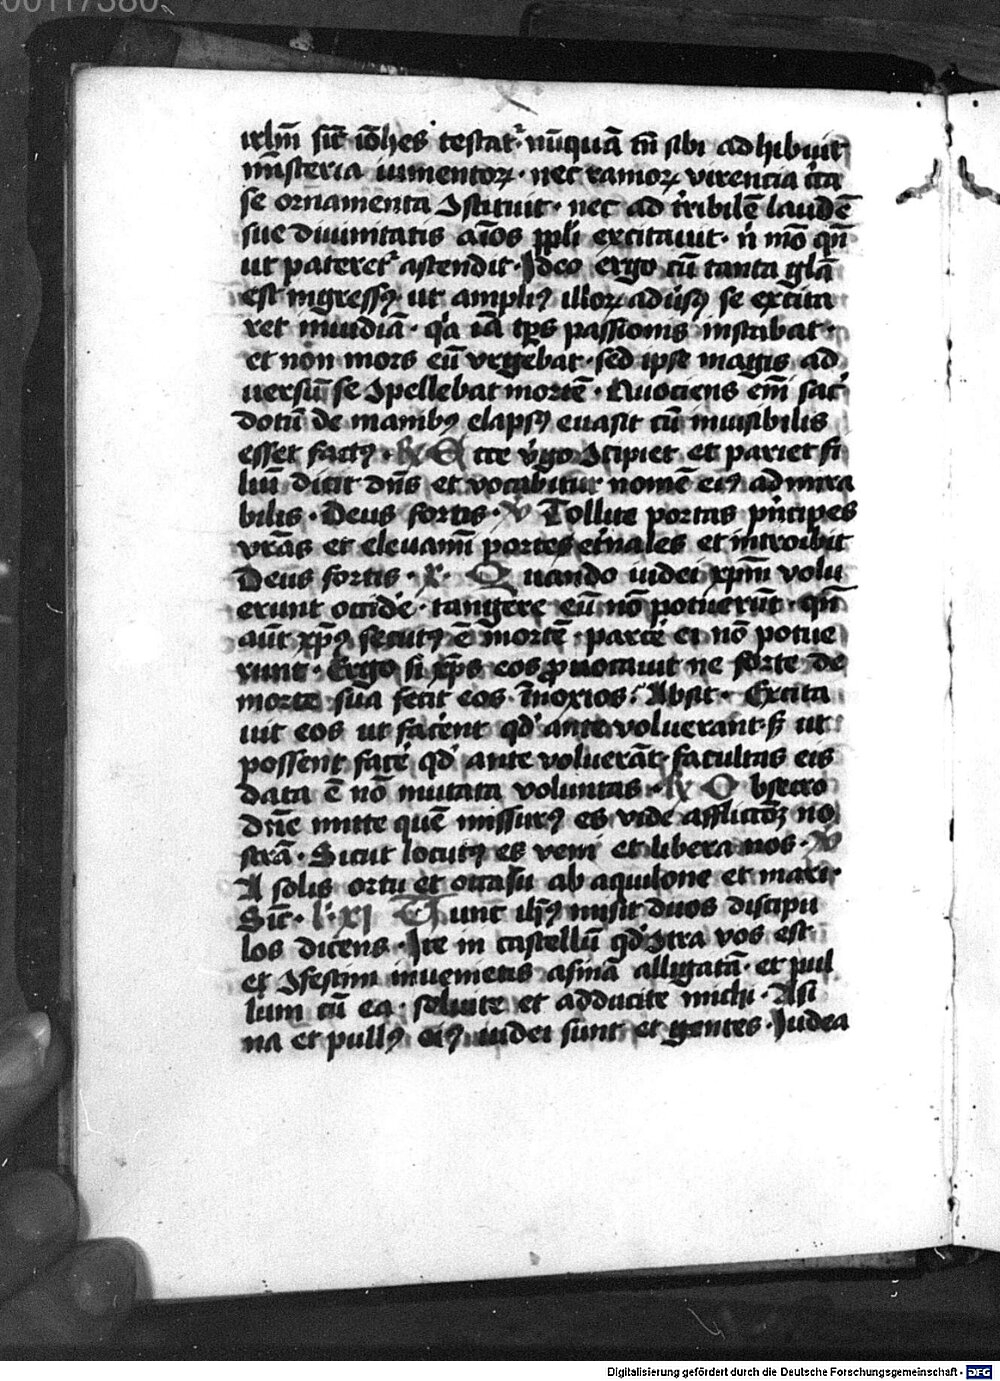 00117380
irlm̄ sic̄ ioh̄es testat᷑· nūquā tn̄ sibi adhibuit
mīsteria iumentoꝝ· nec ramoꝝ virencia cͥca
se ornamenta ꝯstituit· nec ad tͥribilē laudē
sue diuinitatis aīos ppl̄i excitauit· n̄ mō qn̄
ut pateret᷑ astendit· Ideo ergo cū tanta gl̄a
est ingressꝰ· ut ampliꝰ illoꝝ aduͥsꝰ se excita
ret inuidiā· qͥa iā tp̄s passionis instabat·
et non mors eū vrgebat· sed ipse magis ad
uersū se ꝯpellebat mortē· Quociens em̄ sac̓
dotū de manibꝰ elapsꝰ euasit cū inuisibilis
esset factꝰ· ℟ Ecce v̓go ꝯcipiet et pariet fi
liū dicit dn̄s et vocabitur nomē eiꝰ admira
bilis· Deus fortis· ℣ Tollite portas pͥncipes
vr̄as et eleuamī portes et̓nales et introibit
Deus fortis· x· Quando iudei xp̄m volu
erunt occid̓e· tangere eū nō potuerūt· qn̄
aūt xp̄ꝰ secutꝰ ē mortē· parc̓e ei nō potue
runt· Ergo si xp̄s eos ꝓuocauit ne forte de
morte sua fecit eos īnoxios· Absit· Excita
uit eos ut fac̓ent qd̓ ante voluerant· sꝫ ut
possent fac̓e qd̓ ante voluerāt· facultas eis
data ē nō mutata voluntas· ℟ Obsecro
dn̄e mitte quē missurꝰ es vide afflictōeꝫ no
strā· Sicut locutꝰ es veni et libera nos· ℣
A solis ortu et occasu ab aquilone et mari·
Sic̄· l̓· xj Tunc ih̄ꝰ misit duos discipu
los dicens· Ite in castellū qd̓ ꝯtra vos est
et ꝯfestim inuenietis asinā alligatā· et pul
lum cū ea· soluite et adducite michi· Asi
na et pullꝰ eiꝰ iudei sunt et gentes· Iudea
Digitalisierung gefördert durch die Deutsche Forschungsgemeinschaft - DFG